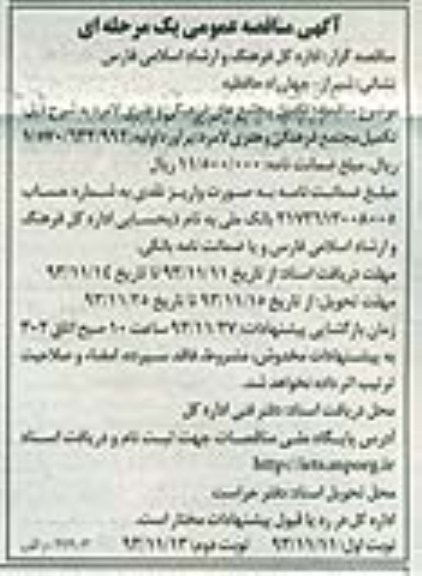 آگهی مناقصه عمومی یک مرحله ای
مناقصه گزار: اداره کل فرهنگ و ارشاد اسلامی فارس
نشانی: شیراز- چهارراه حافظیه
تکمیل مجتمع فرهنگی و هنری لامرد برآورد اولیه: ۹/۵۷۰/۶۳۲/۹۹۲
ریال. مبلغ ضمانت نامه: ۱۱/۵۰۰/۰۰۰ ریال
مبلغ ضمانت نامه به صورت واریز نقدی به شماره حساب
بانک ملی به نام ذیحسابی اداره کل فرهنگ
و ارشاد اسلامی فارس و یا ضمانت نامه بانکی.
مهلت دریافت اسناد: از تاریخ ۹۳/۱۱/۱۱ تا تاریخ ۹۳/۱۱/۱۴
مهلت تحویل: از تاریخ ۹۳/۱۱/۱۵ تا تاریخ ۹۳/۱۱/۲۵
زمان بازگشایی پیشنهادات: ۹۳/۱۱/۲۷ ساعت ۱۰ صبح اتاق ۳۰۲
به پیشنهادات مخدوش، مشروط، فاقد سپرده، امضاء و صلاحیت
ترتیب اثر داده نخواهد شد.
محل دریافت اسناد: دفتر فنی اداره کل
آدرس پایگاه ملی مناقصات جهت ثبت نام و دریافت اسناد
http://iets.mporg.ir
محل تحویل اسناد: دفتر حراست
اداره کل در رد یا قبول پیشنهادات مختار است.
نوبت اول: ۹۳/۱۱/۱۱ نوبت دوم: ۹۳/۱۱/۱۳